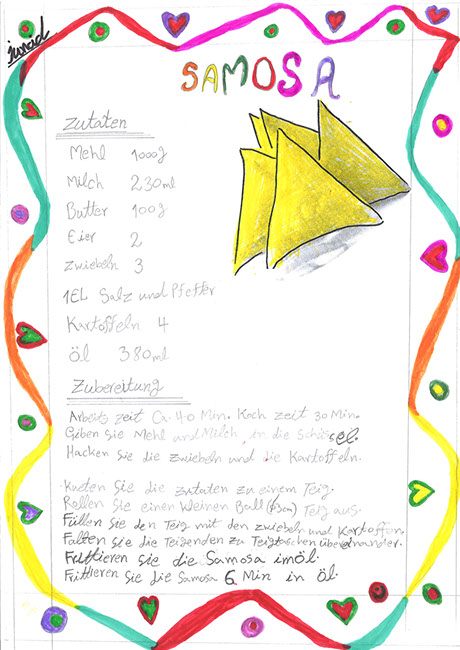 jwad
SAMOSA
Zutaten
Mehl 1000g
Milch 230ml
Butter 100g
Eier 2
Zwiebeln 3
1EL Salz und Pfeffer
Kartoffeln 4
Öl 380ml
Zubereitung
Arbeitszeit Ca. 40 Min. Koch zeit 30 Min.
Giben Sie Mehl und Milch in die Schüssel.
Hacken Sie die Zwiebeln und die Kartoffeln.
Kneten Sie die Zutaten zu einem Teig.
Rollen Sie einen kleinen Ball Teig aus.
Füllen Sie den Teig mit den Zwiebeln und Kartoffen.
Falten Sie die Teigenden zu Teigtaschen übereinander.
Frittieren Sie die Samosa im Öl.
Frittieren Sie die Samosa 6 Min in Öl.